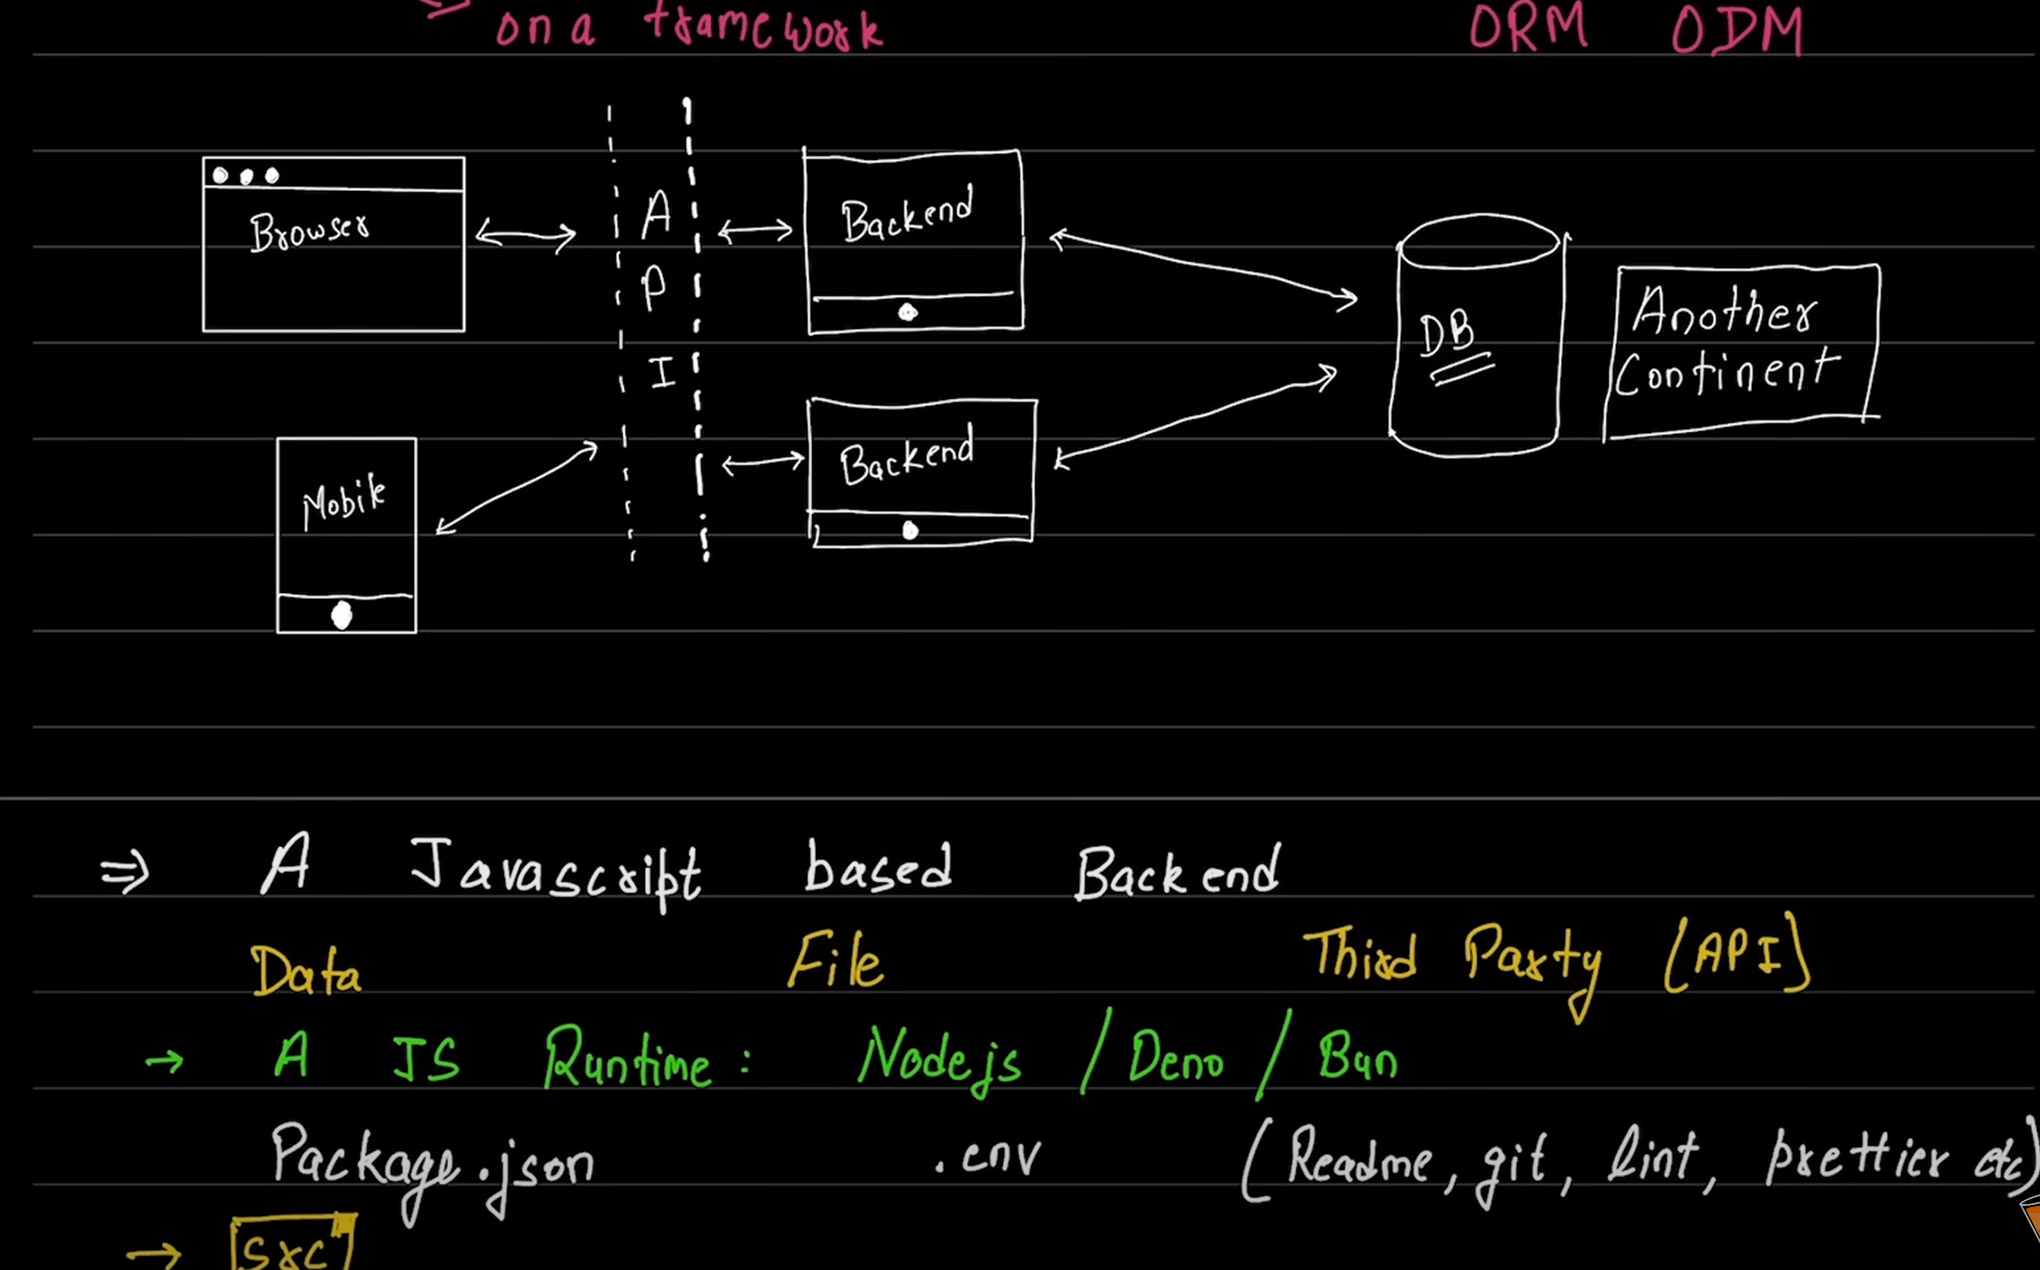 on a framework ORM ODM
Browser
A
P
I
Backend
DB
Another
Continent
Mobile
Backend
⇒ A Javascript based Backend
Data File Third Party (API)
→ A JS Runtime: Nodejs / Deno / Bun
Package.json .env (Readme, git, lint, prettier etc)
→ src